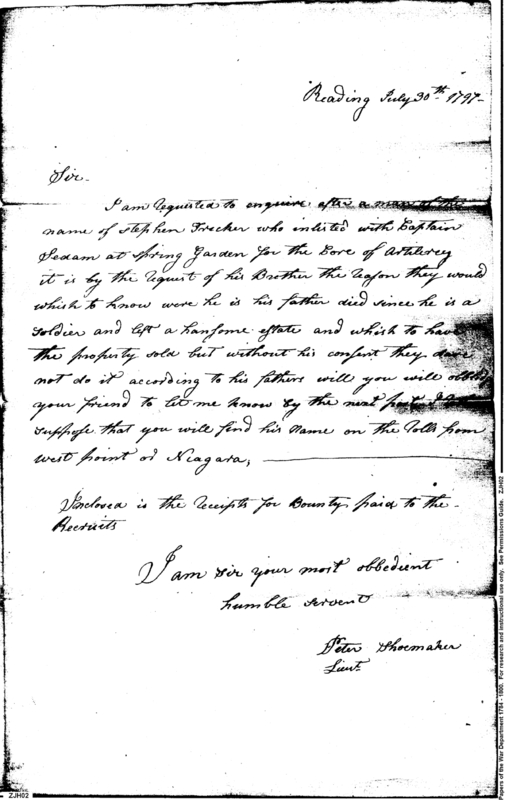 Reading July 30th 1797-
Sir-
I am requisted to enquire after a man of the
name of Stephen Trecker who inlisted with Captain
Sedam at Spring Garden for the Core of Artilerey
it is by the request of his Brother the reason they would
whish to know were he is his father died since he is a
Soldier and left a hansome estate and whish to have
the property sold but without his consent they dare
not do it according to his fathers will you will obblidg
your friend to let me know by the next post I
suppose that you will find his name on the Rolls from
west point or Niagara,
Inclosed is the receipts for Bounty paid to the-
Recruits
I am sir your most obbedient
humble servent
Peter Shoemaker
Lieut.
ZJH02
Papers of the War Department 1784 - 1800. For research and instructional use only. See Permissions Guide. ZJH02